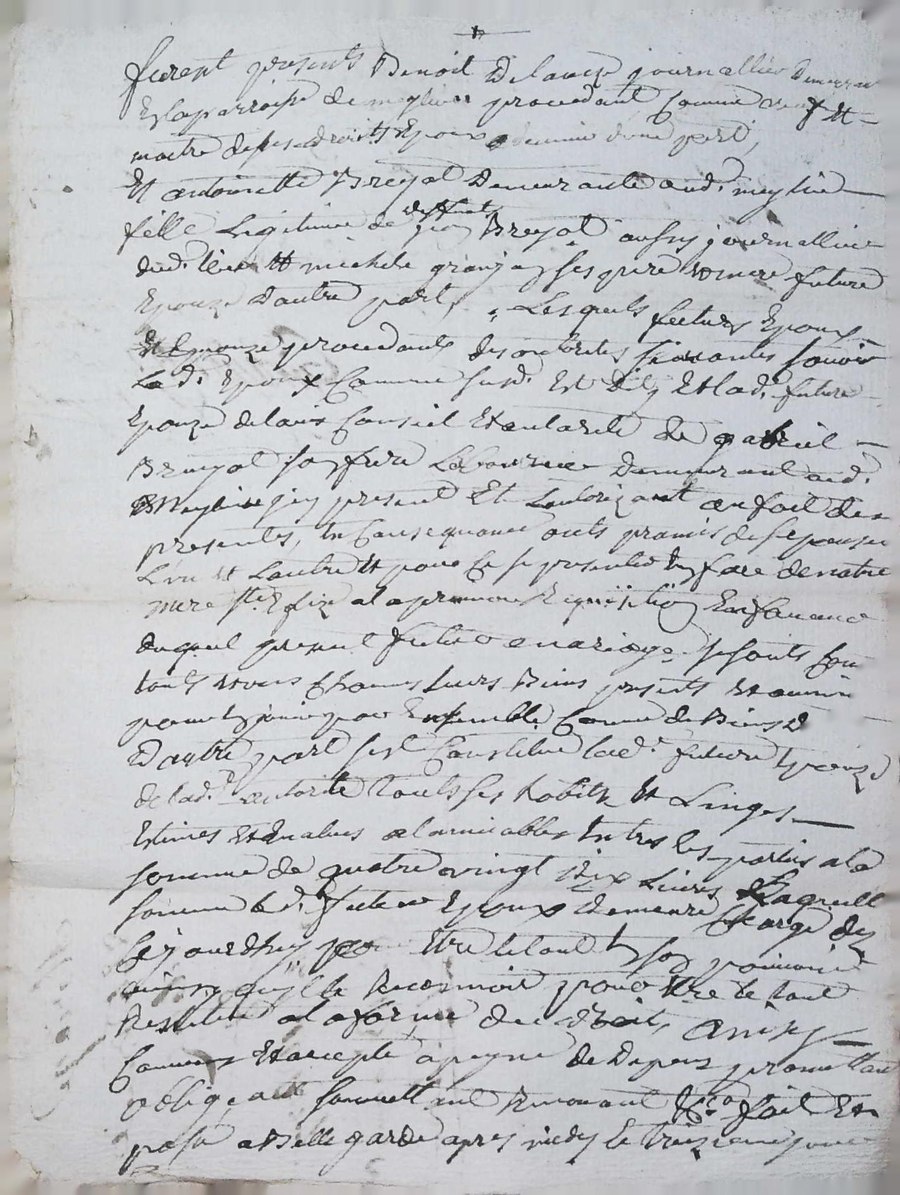 furent presents Benoit Delauze journallier Demeurant
En la parroisse de meylieu procedant Comme et
maitre de ses droits Epoux advenir dune part,
Et antoinette Breyat Demeurante aud. meylieu
fille Legitime de deffunt Breyat aussy journallier
dud. lieu et michele granjasse ses pere et mere future
Epouze Dautre part, Lesquels futurs Epoux
Et Epouze procedants des authorites suivantes savoir
Led. Epoux Comme susd. Est Dit, Et lad. future
Epouze de lavis Conseil Et autorité de gabriel
Breyat son frere Laboureur Demeurant aud.
Meylieu icy present Et Lautorizant au fait des
presentes, En Consequance onts promis de sepouser
Lun et Lautre et pour Ce se presenter En face de notre
mere ste. Eglize a la premiere Requisition En faveur
duquel present futur mariage se sonts Con
touts et uns Chacuns leurs Biens presents et avenir
pour En jouir par Ensemble Comme de Biens
Dautre part sest Constitué lad. future Epouze
de lad. autorité touts ses habits Et Linges
Estimés Et Evalués a lamiable Entre les parties a la
somme de quatre vingt Dix Livres Laquelle
somme led. futur Epoux Demeure Chargé des
Cejourdhuy pour Etre le tout En son pouvoir
ainsy quil le Reconnoit pour Etre le tout
Restitué a la forme du droit, ainsy
Convenu Et accepté a peyne de Depens promettant
obligeant soumettant Renonçant &ca. fait Et
passé a Bellegarde apres midy le treizieme jour